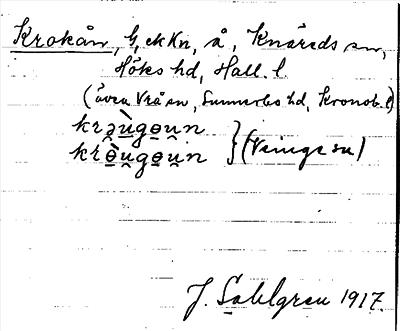 Krokån, G, ek Kn, å, Knäreds sn,
Höks hd, Hall. l
(även Vrå sn, Sunnerbo hd, Kronob. l)
krə̯ùgo̯u̯n
krò̯u̯go̯u̯n } (Veinge sn)
J. Sahlgren 1917.